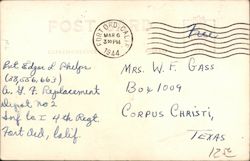 POST CARD
FORT ORD, CALIF.
MAR 6
3 30 PM
1944
Free
Pvt Edgar L Phelps
(38,556,663)
A. G. F. Replacement
Depot No 2
Inf Co I 4th Regt.
Fort Ord, Calif.
MRS. W. F. GASS
BOX 1009
CORPUS CHRISTI,
TEXAS.